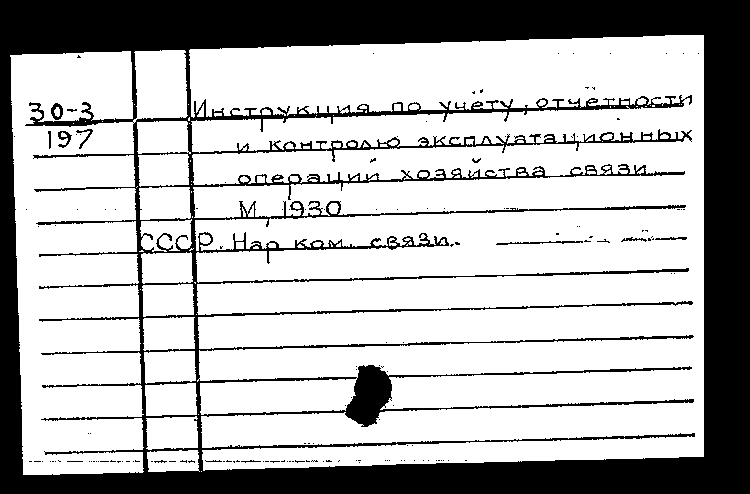 30-3 Инструкция по учёту, отчётности
197 и контролю эксплуатационных
операций хозяйства связи
М, 1930
СССР. Нар ком. связи.